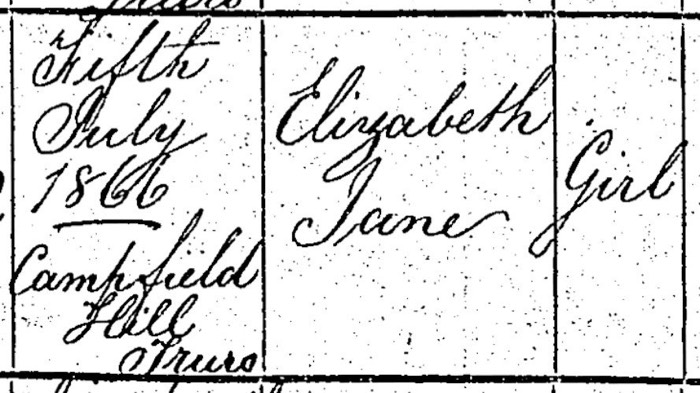 Truro
Fifth
July
1866
Campfield
Hill
Truro
Elizabeth
Jane
Girl